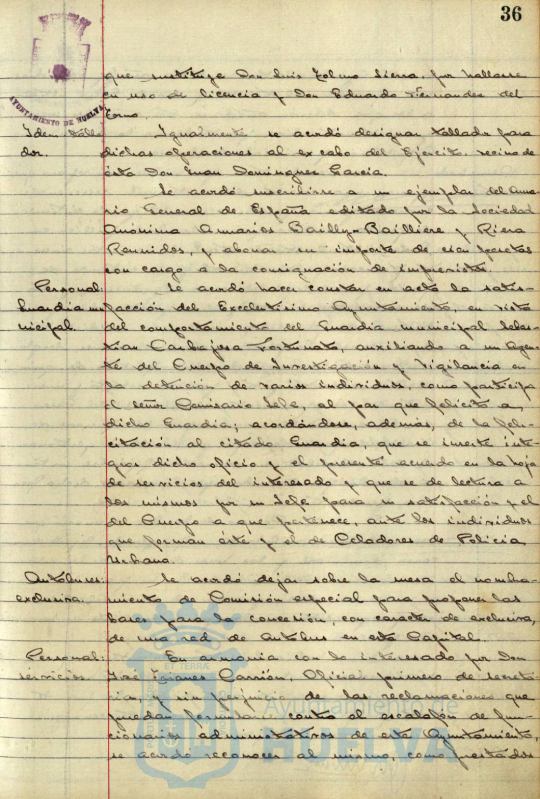 36
AYUNTAMIENTO DE HUELVA
que sustituye Don Luis Tolmo Sierra, por hallarse
en uso de licencia y Don Eduardo Fernandez del
Torno.
Idem Talla
dor.
Igualmente se acordó designar tallador para
dichas operaciones al ex cabo del Ejército, vecino de
ésta Don Juan Dominguez Garcia.
Se acordó suscribirse a un ejemplar del Anua
rio General de España editado por la Sociedad
Anónima Anuarios Bailly-Bailliere y Riera
Reunidos, y abonar su importe de cien pesetas
con cargo a la consignación de imprevistos.
Personal:
Guardia mu
nicipal.
Se acordó hacer constar en acta la satis-
facción del Excelentísimo Ayuntamiento, en vista
del comportamiento del Guardia municipal Sebas-
tian Carbajosa Fortunato, auxiliando a un Agen-
te del Cuerpo de Investigación y Vigilancia en
la detención de varios individuos, como participa
el señor Comisario Jefe, al par que felicita a
dicho Guardia; acordándose, además, de la feli-
citación al citado Guardia, que se inserte inte-
gros dicho oficio y el presente acuerdo en la hoja
de servicios del interesado y que se de lectura a
los mismos por su Jefe para su satisfacción y el
del Cuerpo a que pertenece, ante los individuos
que forman éste y el de Celadores de Policia
Urbana.
Autobuses:
exclusiva.
Se acordó dejar sobre la mesa el nombra-
miento de Comisión especial para proponer las
bases para la concesión, con caracter de exclusiva,
de una red de autobus en esta Capital.
Personal:
servicios
En armonia con lo interesado por Don
José Carrión, Oficial primero de secreta-
ria, y sin perjuicio de las reclamaciones que
puedan formular contra el escalafón de fun-
cionarios administrativos de este Ayuntamiento,
se acordó reconocer al mismo, como prestados
Ayuntamiento de
HUELVA